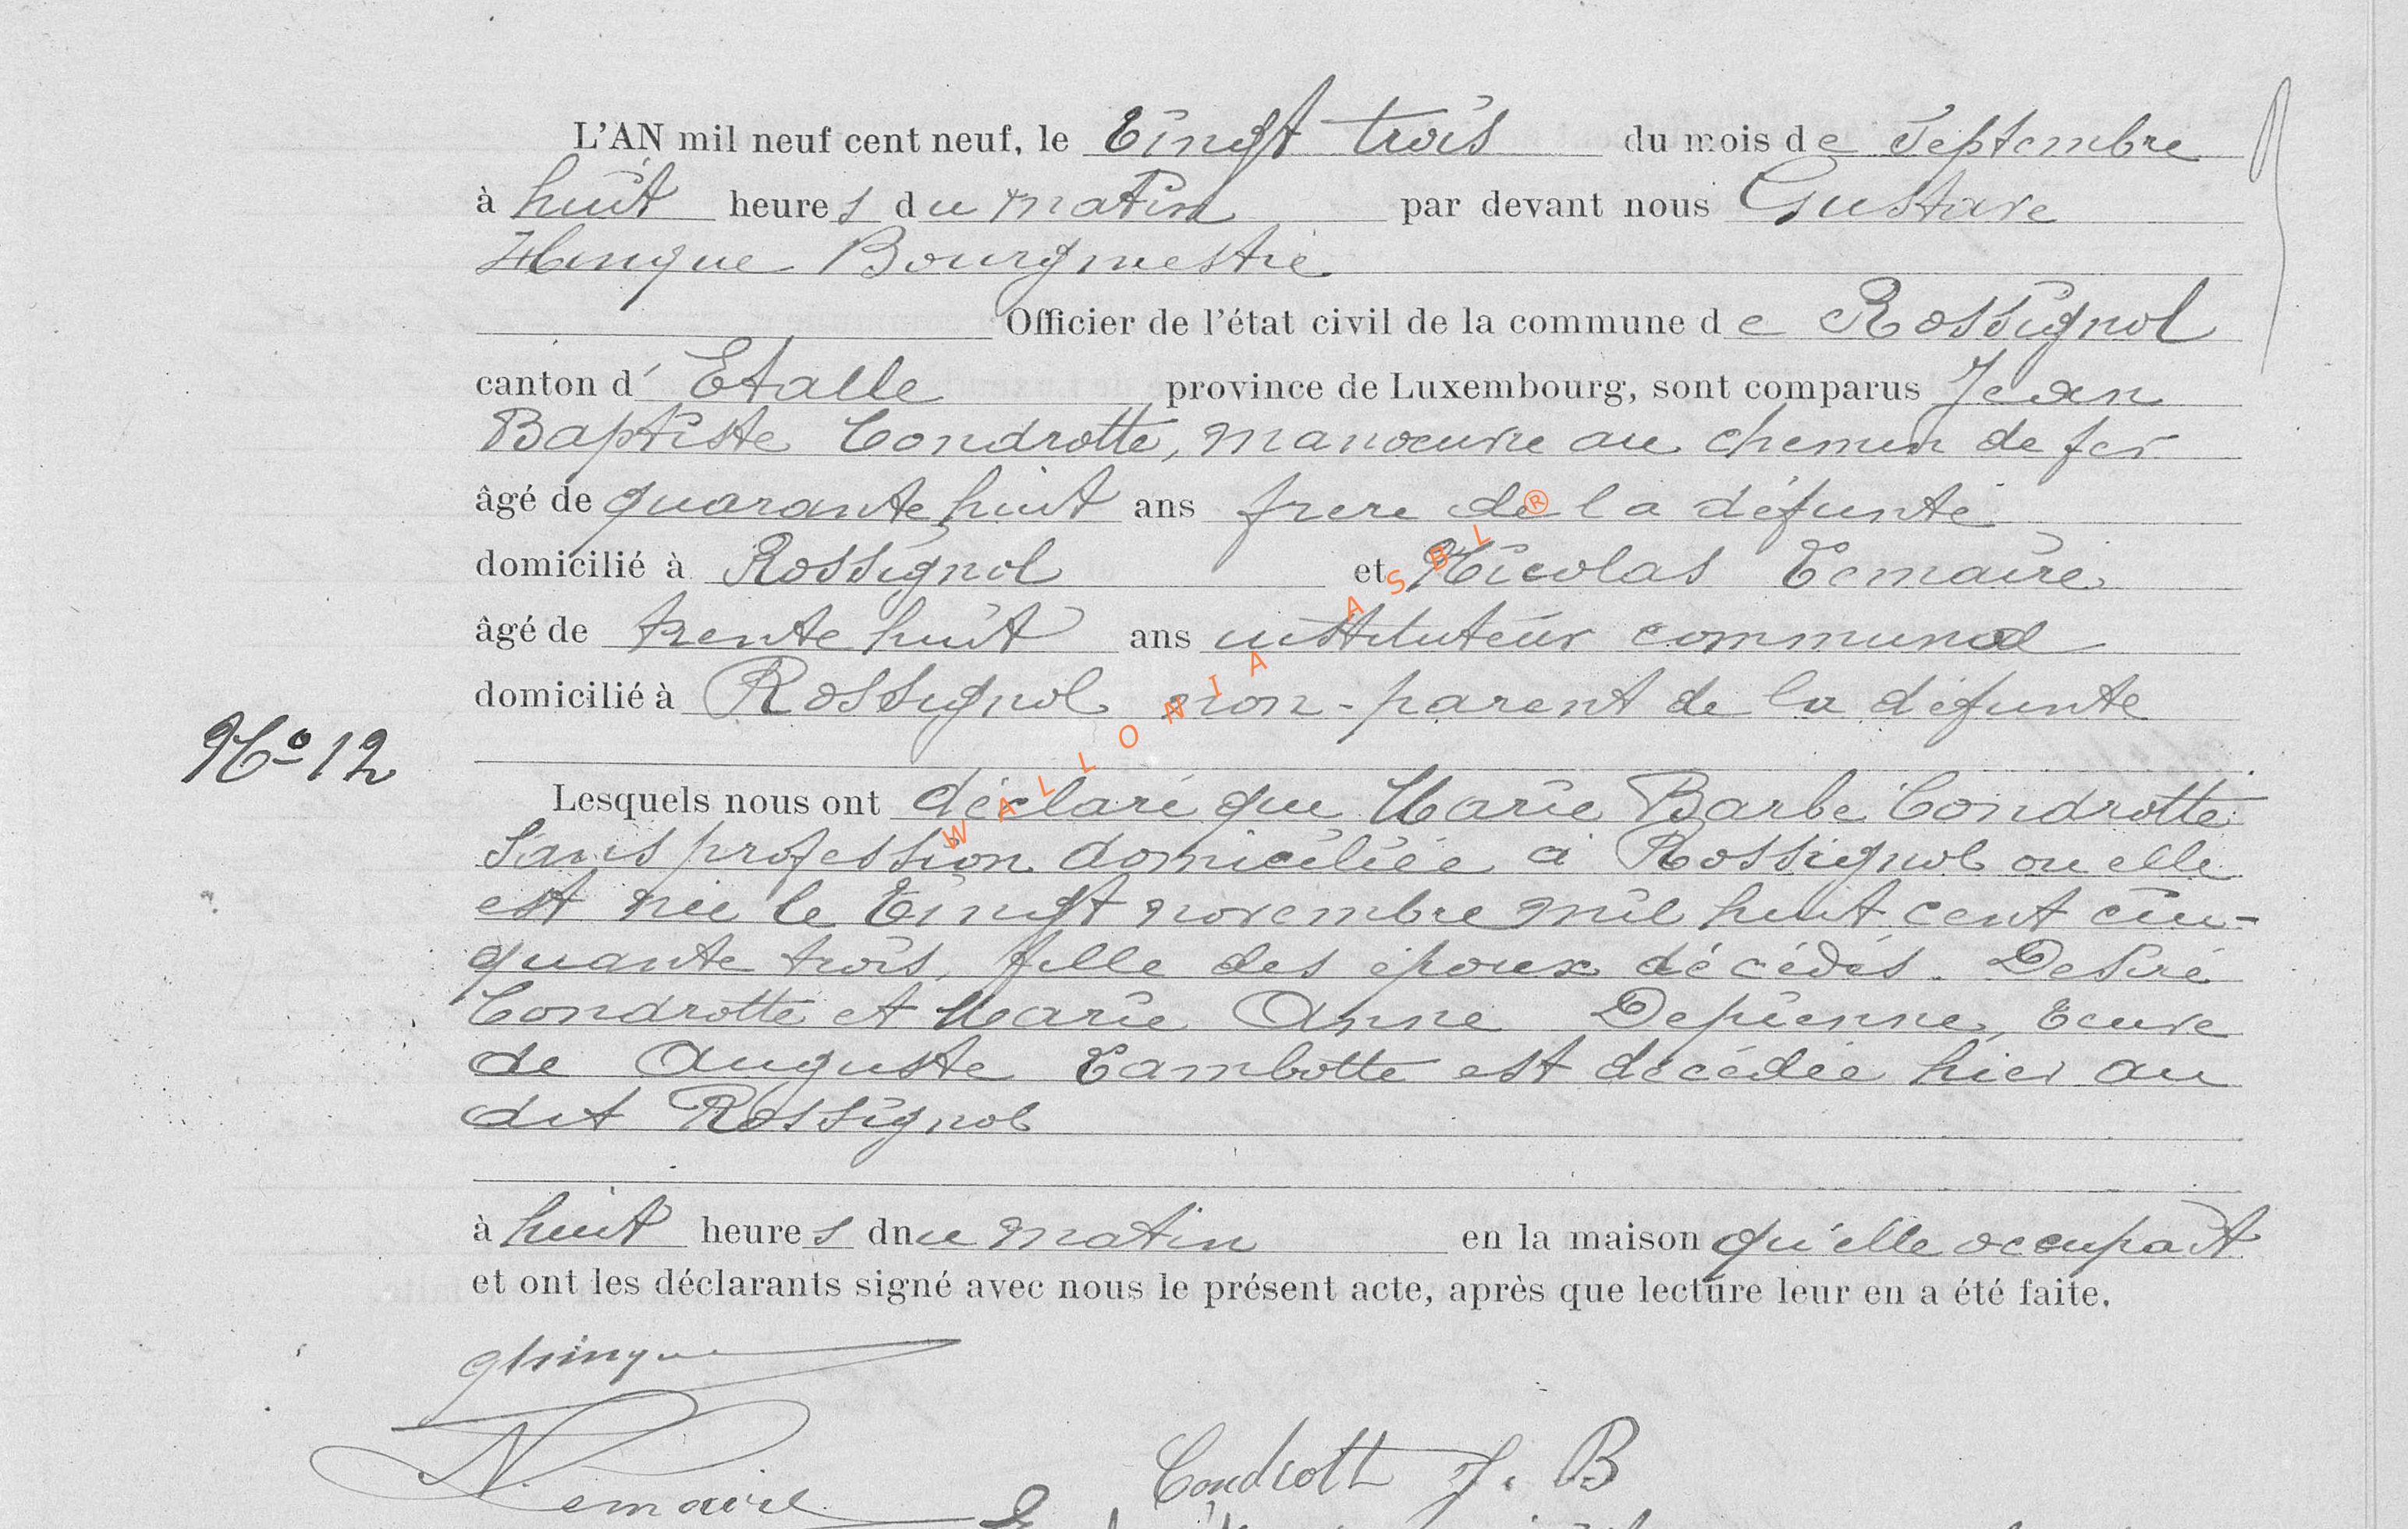 L'AN mil neuf cent neuf, le Vingt trois du mois de Septembre
à huit heures du matin par devant nous Gustave
Hinque Bourgmestre
Officier de l'état civil de la commune de Rossignol
canton d' Etalle province de Luxembourg, sont comparus Jean
Baptiste Condrotte, manœuvre au chemin de fer
âgé de quarante huit ans frere de la défunte
domicilié à Rossignol et Nicolas Lemaire
âgé de trente huit ans instituteur communal
domicilié à Rossignol non-parent de la défunte
No 12
Lesquels nous ont déclaré que Marie Barbe Condrotte
Sans profession domiciliée à Rossignol ou elle
est née le Vingt novembre mil huit cent cin-
quante trois, fille des époux décédés Desiré
Condrotte et Marie Anne Depienne, Veuve
de Auguste Lambotte est décédée hier au
dit Rossignol
à huit heures dnu matin en la maison qu'elle occupait
et ont les déclarants signé avec nous le présent acte, après que lecture leur en a été faite.
GHinque
N Lemaire
Condrott J. B
WALLONIA ASBL ®